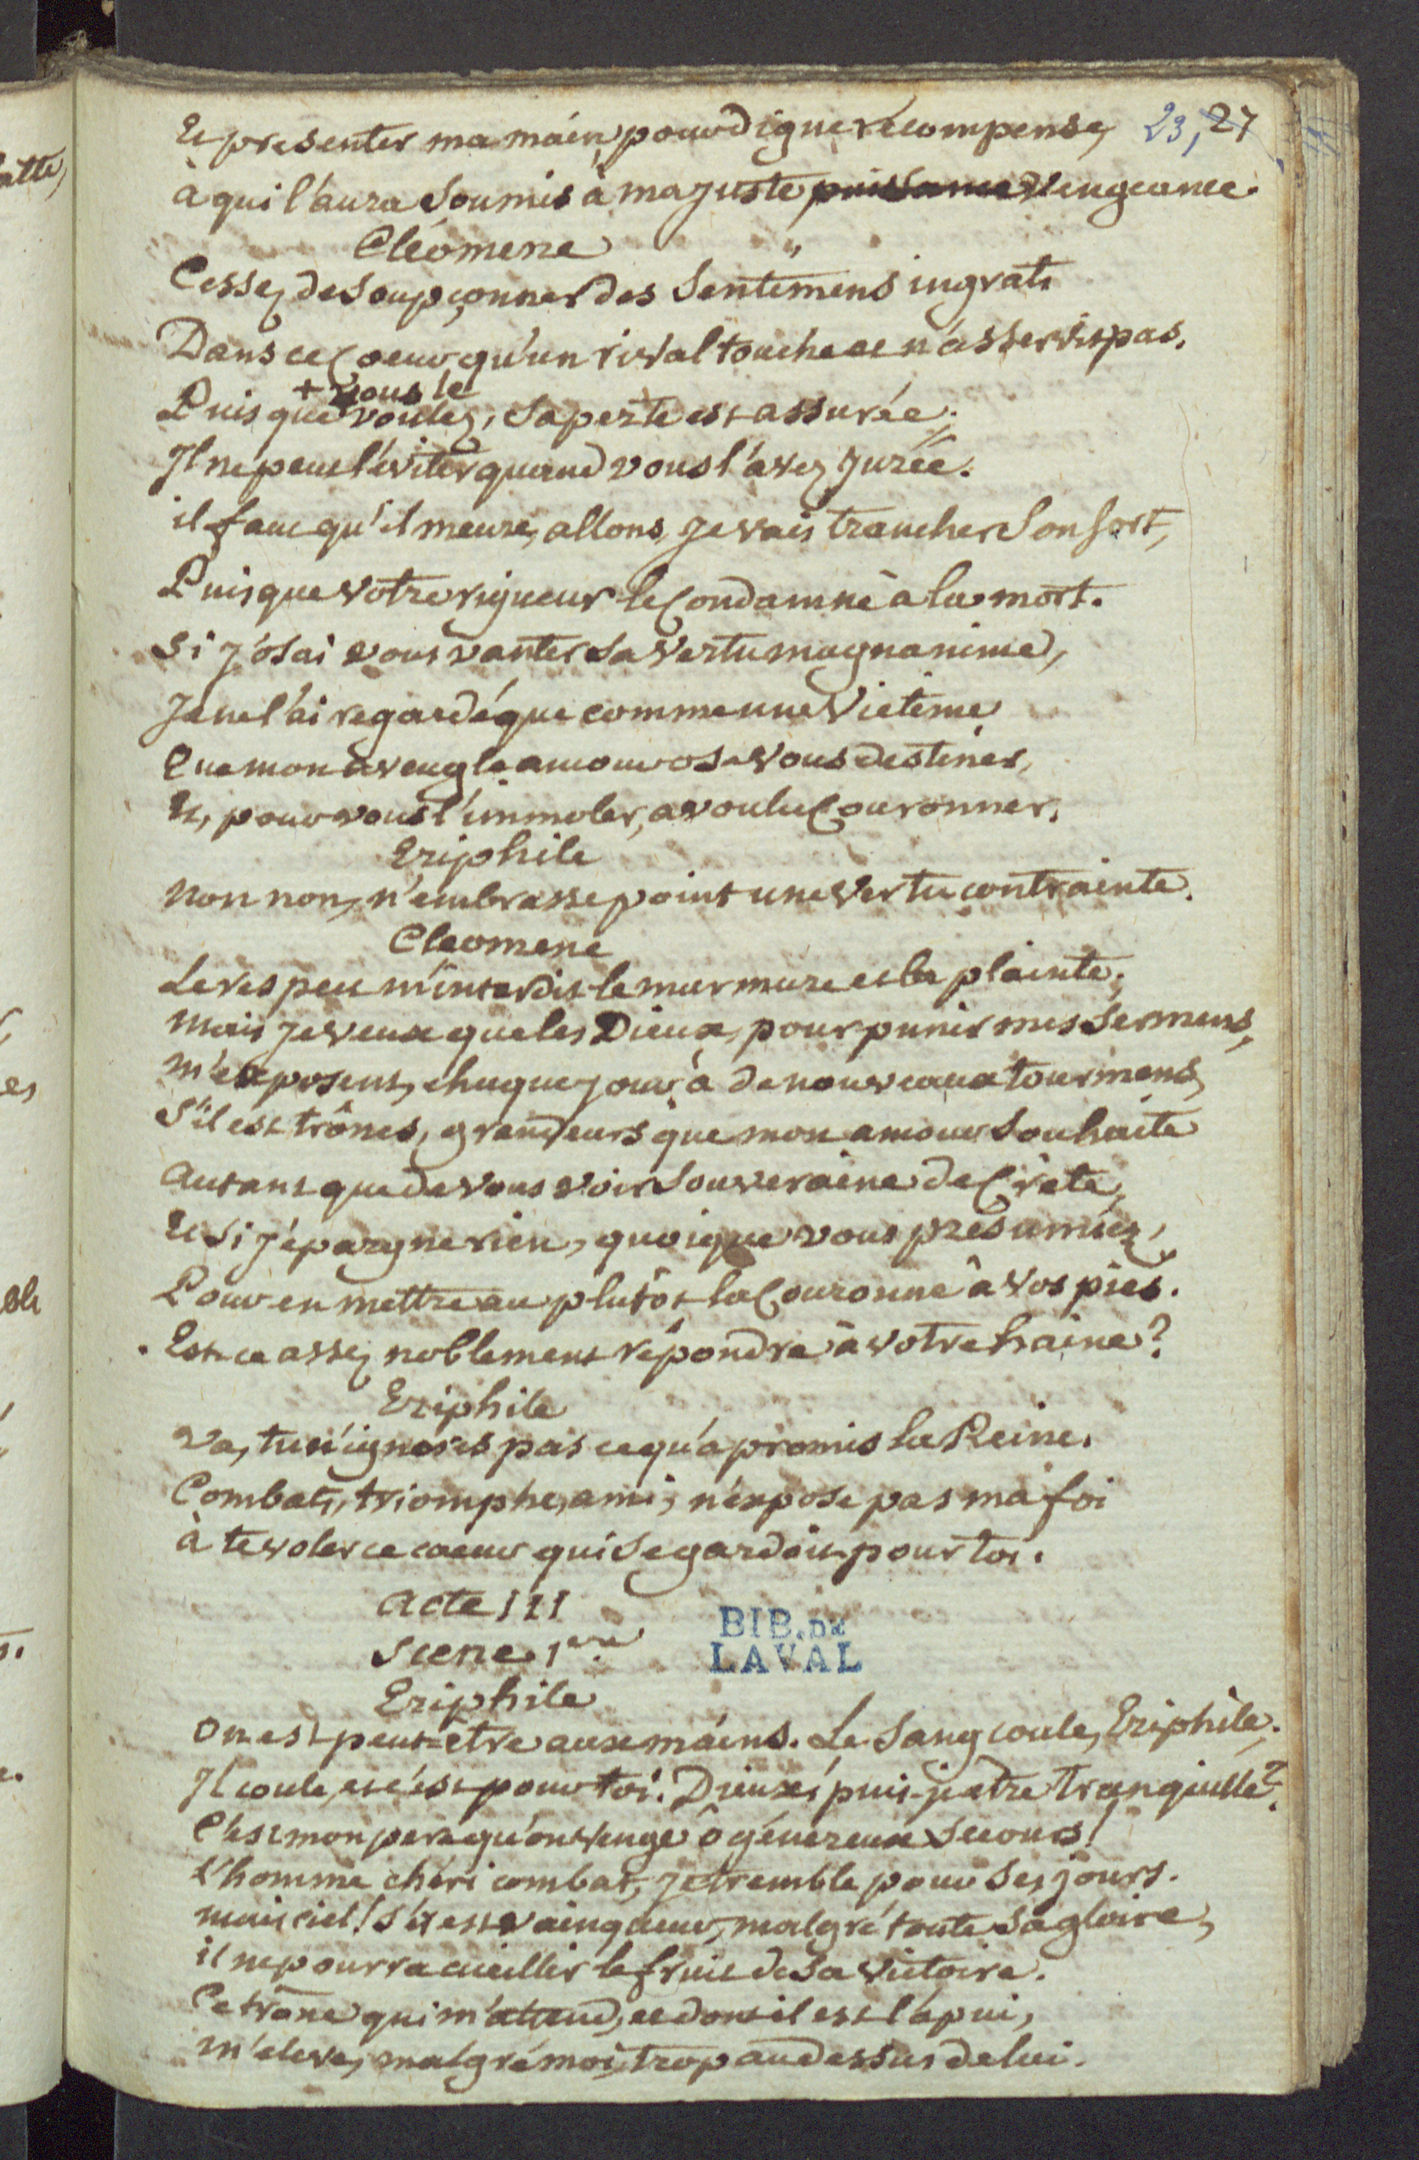 23, 27
Et presenter ma main, pour digne récompense,
à qui l'aura Soumis à ma juste puissance vengeance.
Cléomene
Cessez de Soupçonner des Sentimens ingrats
Dans ce Coeur qu'un rival touche et n'asservit pas.
+ vous le
Puisque voulez, sa perte est assurée;
Il ne peut l'éviter quand vous l'avez jurée.
il faut qu'il meure, allons, je vais trancher Son sort,
Puisque votre rigueur le Condamne à la mort.
Si j'osai vous vanter sa vertu magnanime,
Je ne l'ai regardé que comme une Victime
Que mon aveugle amour osa vous destiner,
Et, pour vous l'immoler, a voulu Couronner.
Eriphile
Non non, n'embrasse point une vertu contrainte.
Cleomene
Le respect m'interdit le murmure et la plainte;
Mais je veux que les Dieux, pour punir mes Sermens,
M'exposent, chaque jour, à de nouveaux tourmens,
S'il est trônes, grandeurs que mon amour Souhaite
Autant que de vous voir Souveraine de Crète,
Et Si j'épargne rien, quoique vous présumiez,
Pour en mettre au plutôt la Couronne à vos piés.
Est-ce assez noblement répondre à votre haine?
Eriphile
Va, tu n'ignores pas ce qu'a promis la Reine.
Combats, triomphe, ami, n'expose pas ma foi
à te voler ce coeur qui Se gardoit pour toi.
Acte III
Scene 1ere
BIB. DE
LAVAL
Eriphile
On est peut-etre aux mains. Le Sang coule, Eriphile;
Il coule, et c'est pour toi. Dieux! puis-je etre Tranquille?
C'est mon pere qu'on venge ô généreux Secours!
L'homme chéri combat, je tremble pour Ses jours.
Mais ciel! s'il est vainqueur, malgré toute Sa gloire,
il ne pourra cueillir le fruit de Sa victoire.
Ce trône qui m'attend, et dont il est l'apui,
M'eleve, malgré moi, trop au dessus de lui.